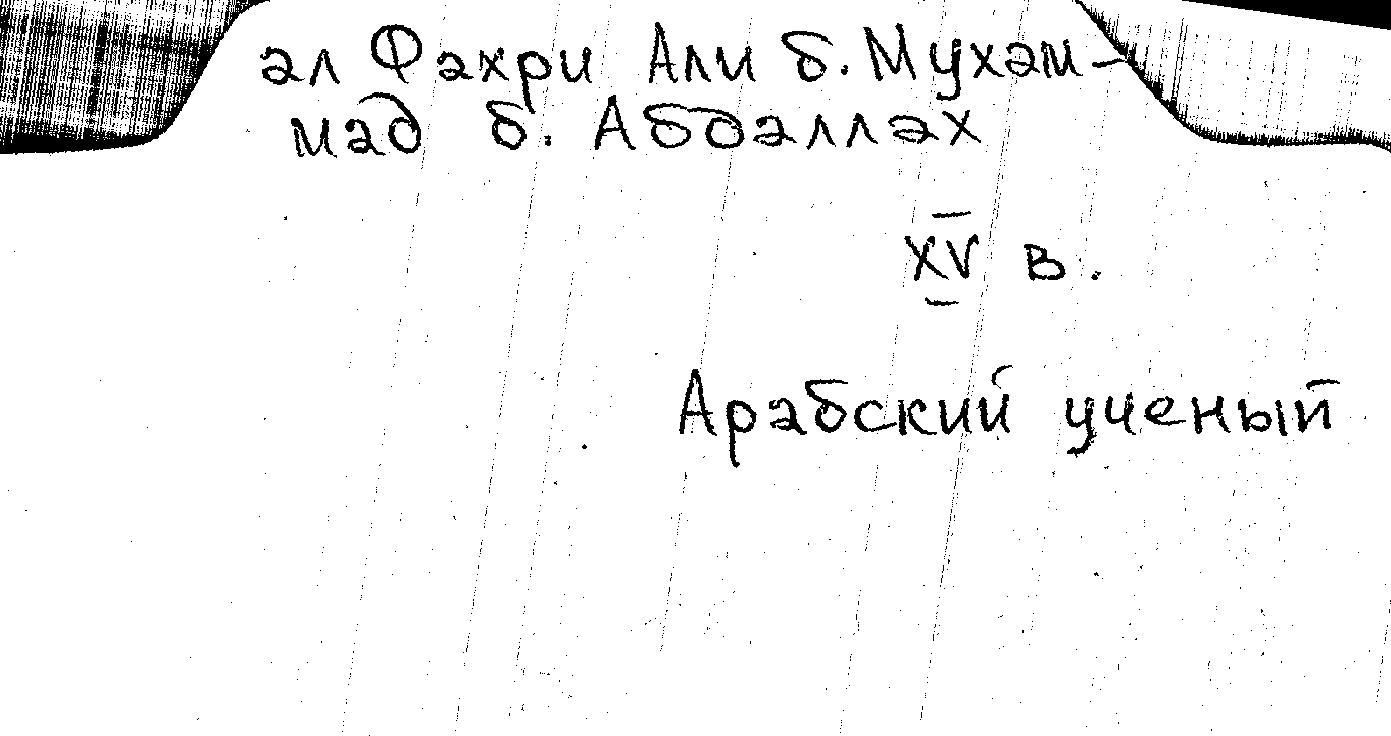 ал Фахри Али б. Мухам-
мад б. Абдаллах
XV в.
Арабский ученый